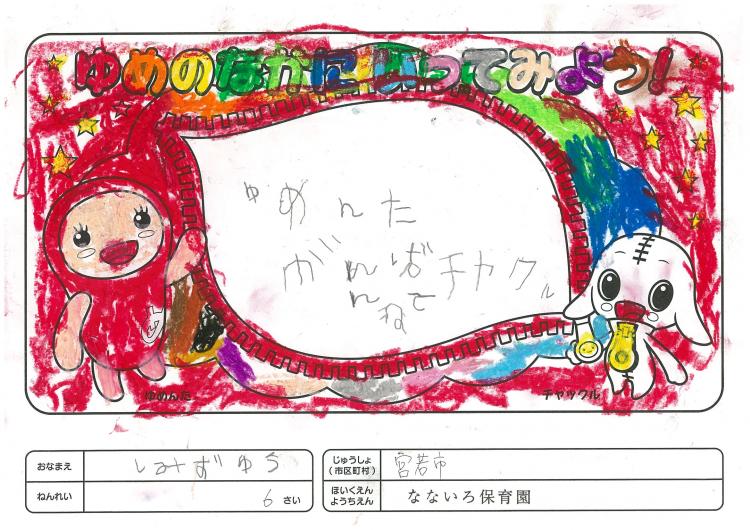 ゆめのなかに入ってみよう!
ゆめんた
がんばチヤクル
んて
ね
ゆめんた
チャックル
おなまえ しみずゆう
ねんれい 6 さい
じゅうしょ
(市区町村) 宮若市
ほいくえん
ようちえん なないろ保育園